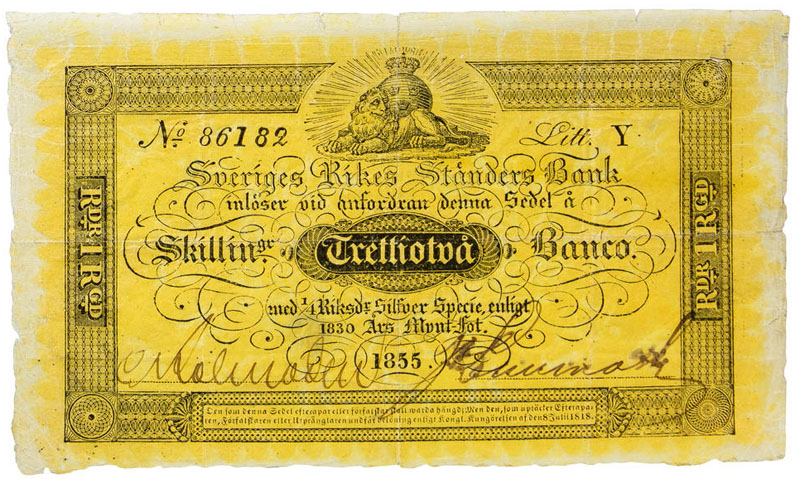 No 86182 Litt. Y
Sveriges Rikes Ständers Bank
inlöser vid anfordran denna Sedel å
Skillingr Trettiotvå Banco.
med 1/4 Riksdr Silfver Specie, enligt
1830 Års Mynt-Fot.
1855.
RDR 1 RGD
RDR 1 RGD
Den som denna Sedel efterapar eller förfalskar skall warda hängd; Men den, som uptäcker Efterapa-
ren, Förfalskaren eller Utprånglaren undfår belöning enligt Kongl. Kungörelsen af den 8 Julii 1818.